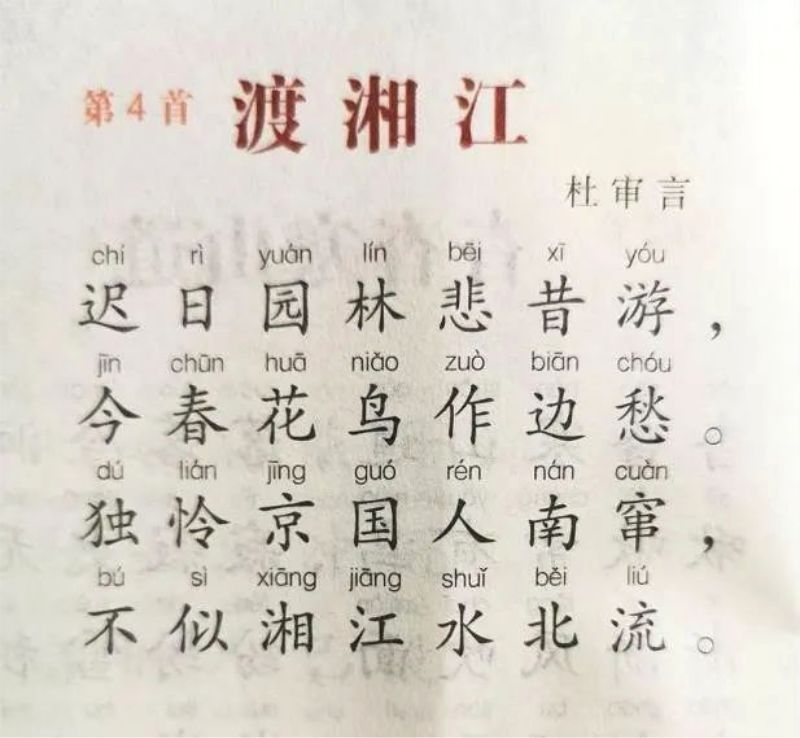 第4首 渡湘江
杜审言
chí rì yuán lín bēi xī yóu
迟日园林悲昔游，
jīn chūn huā niǎo zuò biān chóu
今春花鸟作边愁。
dú lián jīng guó rén nán cuàn
独怜京国人南窜，
bú sì xiāng jiāng shuǐ běi liú
不似湘江水北流。